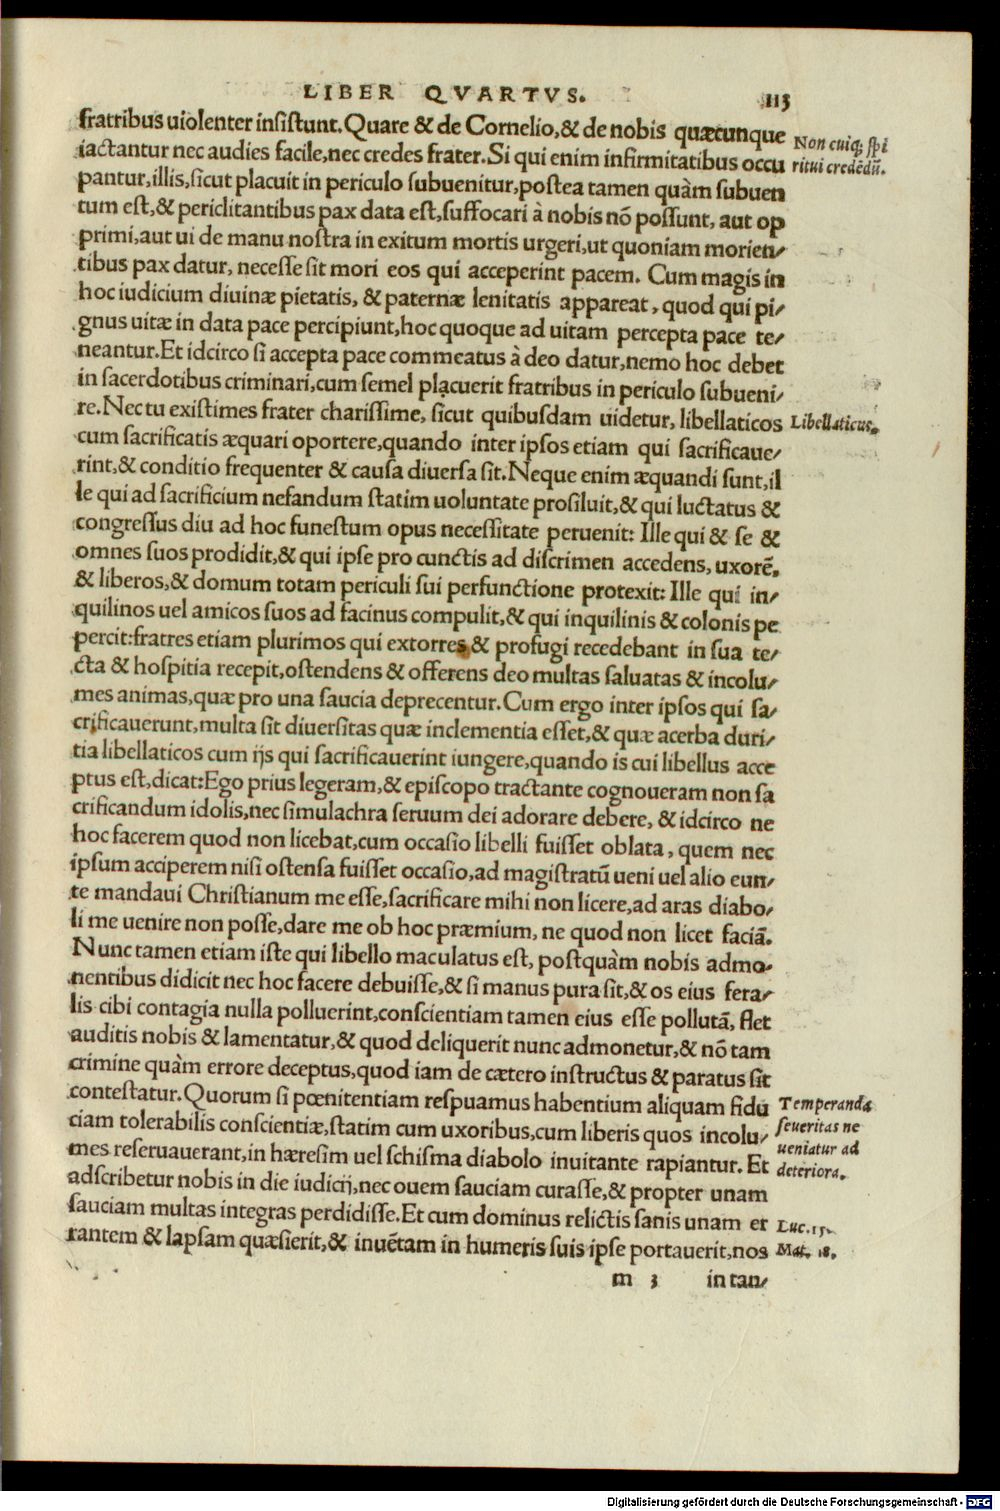 LIBER QVARTVS. 113
fratribus uiolenter insistunt. Quare & de Cornelio, & de nobis quæcunque
iactantur nec audies facile, nec credes frater. Si qui enim infirmitatibus occu
Non cuiq; spi
ritui credēdū.
pantur, illis, sicut placuit in periculo subuenitur, postea tamen quàm subuen
tum est, & periclitantibus pax data est, suffocari à nobis nō possunt, aut op
primi, aut ui de manu nostra in exitum mortis urgeri, ut quoniam morien/
tibus pax datur, necesse sit mori eos qui acceperint pacem. Cum magis in
hoc iudicium diuinæ pietatis, & paternæ lenitatis appareat, quod qui pi/
gnus uitæ in data pace percipiunt, hoc quoque ad uitam percepta pace te/
neantur. Et idcirco si accepta pace commeatus à deo datur, nemo hoc debet
in sacerdotibus criminari, cum semel placuerit fratribus in periculo subueni/
re. Nec tu existimes frater charissime, sicut quibusdam uidetur, libellaticos
Libellaticus.
cum sacrificatis æquari oportere, quando inter ipsos etiam qui sacrificaue/
rint, & conditio frequenter & causa diuersa sit. Neque enim æquandi sunt, il
le qui ad sacrificium nefandum statim uoluntate prosiluit, & qui luctatus &
congressus diu ad hoc funestum opus necessitate peruenit: Ille qui & se &
omnes suos prodidit, & qui ipse pro cunctis ad discrimen accedens, uxorē,
& liberos, & domum totam periculi sui perfunctione protexit: Ille qui in/
quilinos uel amicos suos ad facinus compulit, & qui inquilinis & colonis pe
percit: fratres etiam plurimos qui extorres, & profugi recedebant in sua te/
cta & hospitia recepit, ostendens & offerens deo multas saluatas & incolu/
mes animas, quæ pro una saucia deprecentur. Cum ergo inter ipsos qui sa/
crificauerunt, multa sit diuersitas quæ inclementia esset, & quæ acerba duri/
tia libellaticos cum ijs qui sacrificauerint iungere, quando is cui libellus acce
ptus est, dicat: Ego prius legeram, & episcopo tractante cognoueram non sa
crificandum idolis, nec simulachra seruum dei adorare debere, & idcirco ne
hoc facerem quod non licebat, cum occasio libelli fuisset oblata, quem nec
ipsum acciperem nisi ostensa fuisset occasio, ad magistratū ueni uel alio eun/
te mandaui Christianum me esse, sacrificare mihi non licere, ad aras diabo/
li me uenire non posse, dare me ob hoc præmium, ne quod non licet faciā.
Nunc tamen etiam iste qui libello maculatus est, postquàm nobis admo/
nentibus didicit nec hoc facere debuisse, & si manus pura sit, & os eius fera/
lis cibi contagia nulla polluerint, conscientiam tamen eius esse pollutā, flet
auditis nobis & lamentatur, & quod deliquerit nunc admonetur, & nō tam
crimine quàm errore deceptus, quod iam de cætero instructus & paratus sit
contestatur. Quorum si pœnitentiam respuamus habentium aliquam fidu
ciam tolerabilis conscientiæ, statim cum uxoribus, cum liberis quos incolu/
Temperanda
seueritas ne
ueniatur ad
deteriora.
mes reseruauerant, in hæresim uel schisma diabolo inuitante rapiantur. Et
adscribetur nobis in die iudicij, nec ouem sauciam curasse, & propter unam
sauciam multas integras perdidisse. Et cum dominus relictis sanis unam er
Luc. 15.
rantem & lapsam quæsierit, & inuētam in humeris suis ipse portauerit, nos
Mat. 18.
m 3 in tan/
Digitalisierung gefördert durch die Deutsche Forschungsgemeinschaft - DFG